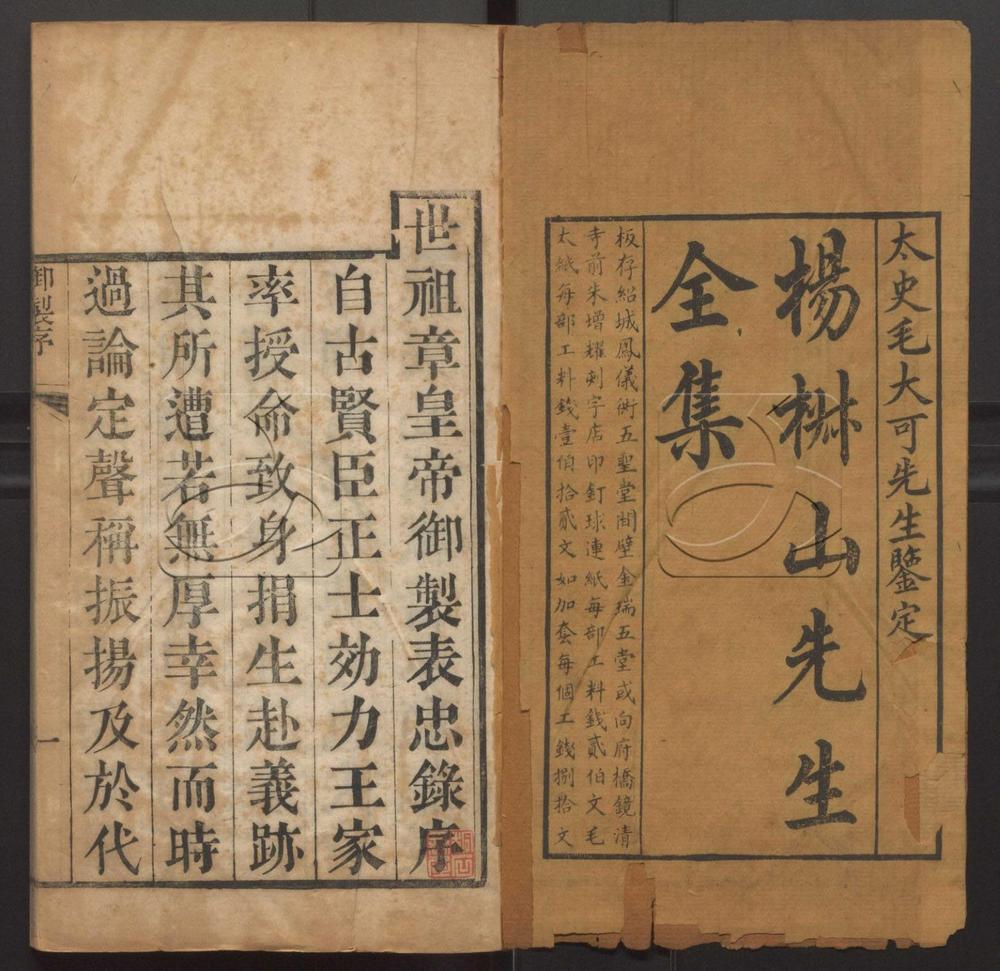 太史毛大可先生鑒定
楊椒山先生
全集
板存紹城鳳儀衖五聖堂間壁金瑞五堂或向府橋鏡清
寺前朱增耀刻字店印釘球連紙每部工料錢貳伯文毛
太紙每部工料錢壹伯拾貳文如加套每個工錢捌拾文
世祖章皇帝御製表忠錄序
自古賢臣正士効力王家
率授命致身捐生赴義跡
其所遭若無厚幸然而時
過論定聲稱振揚及於代
御製序
一